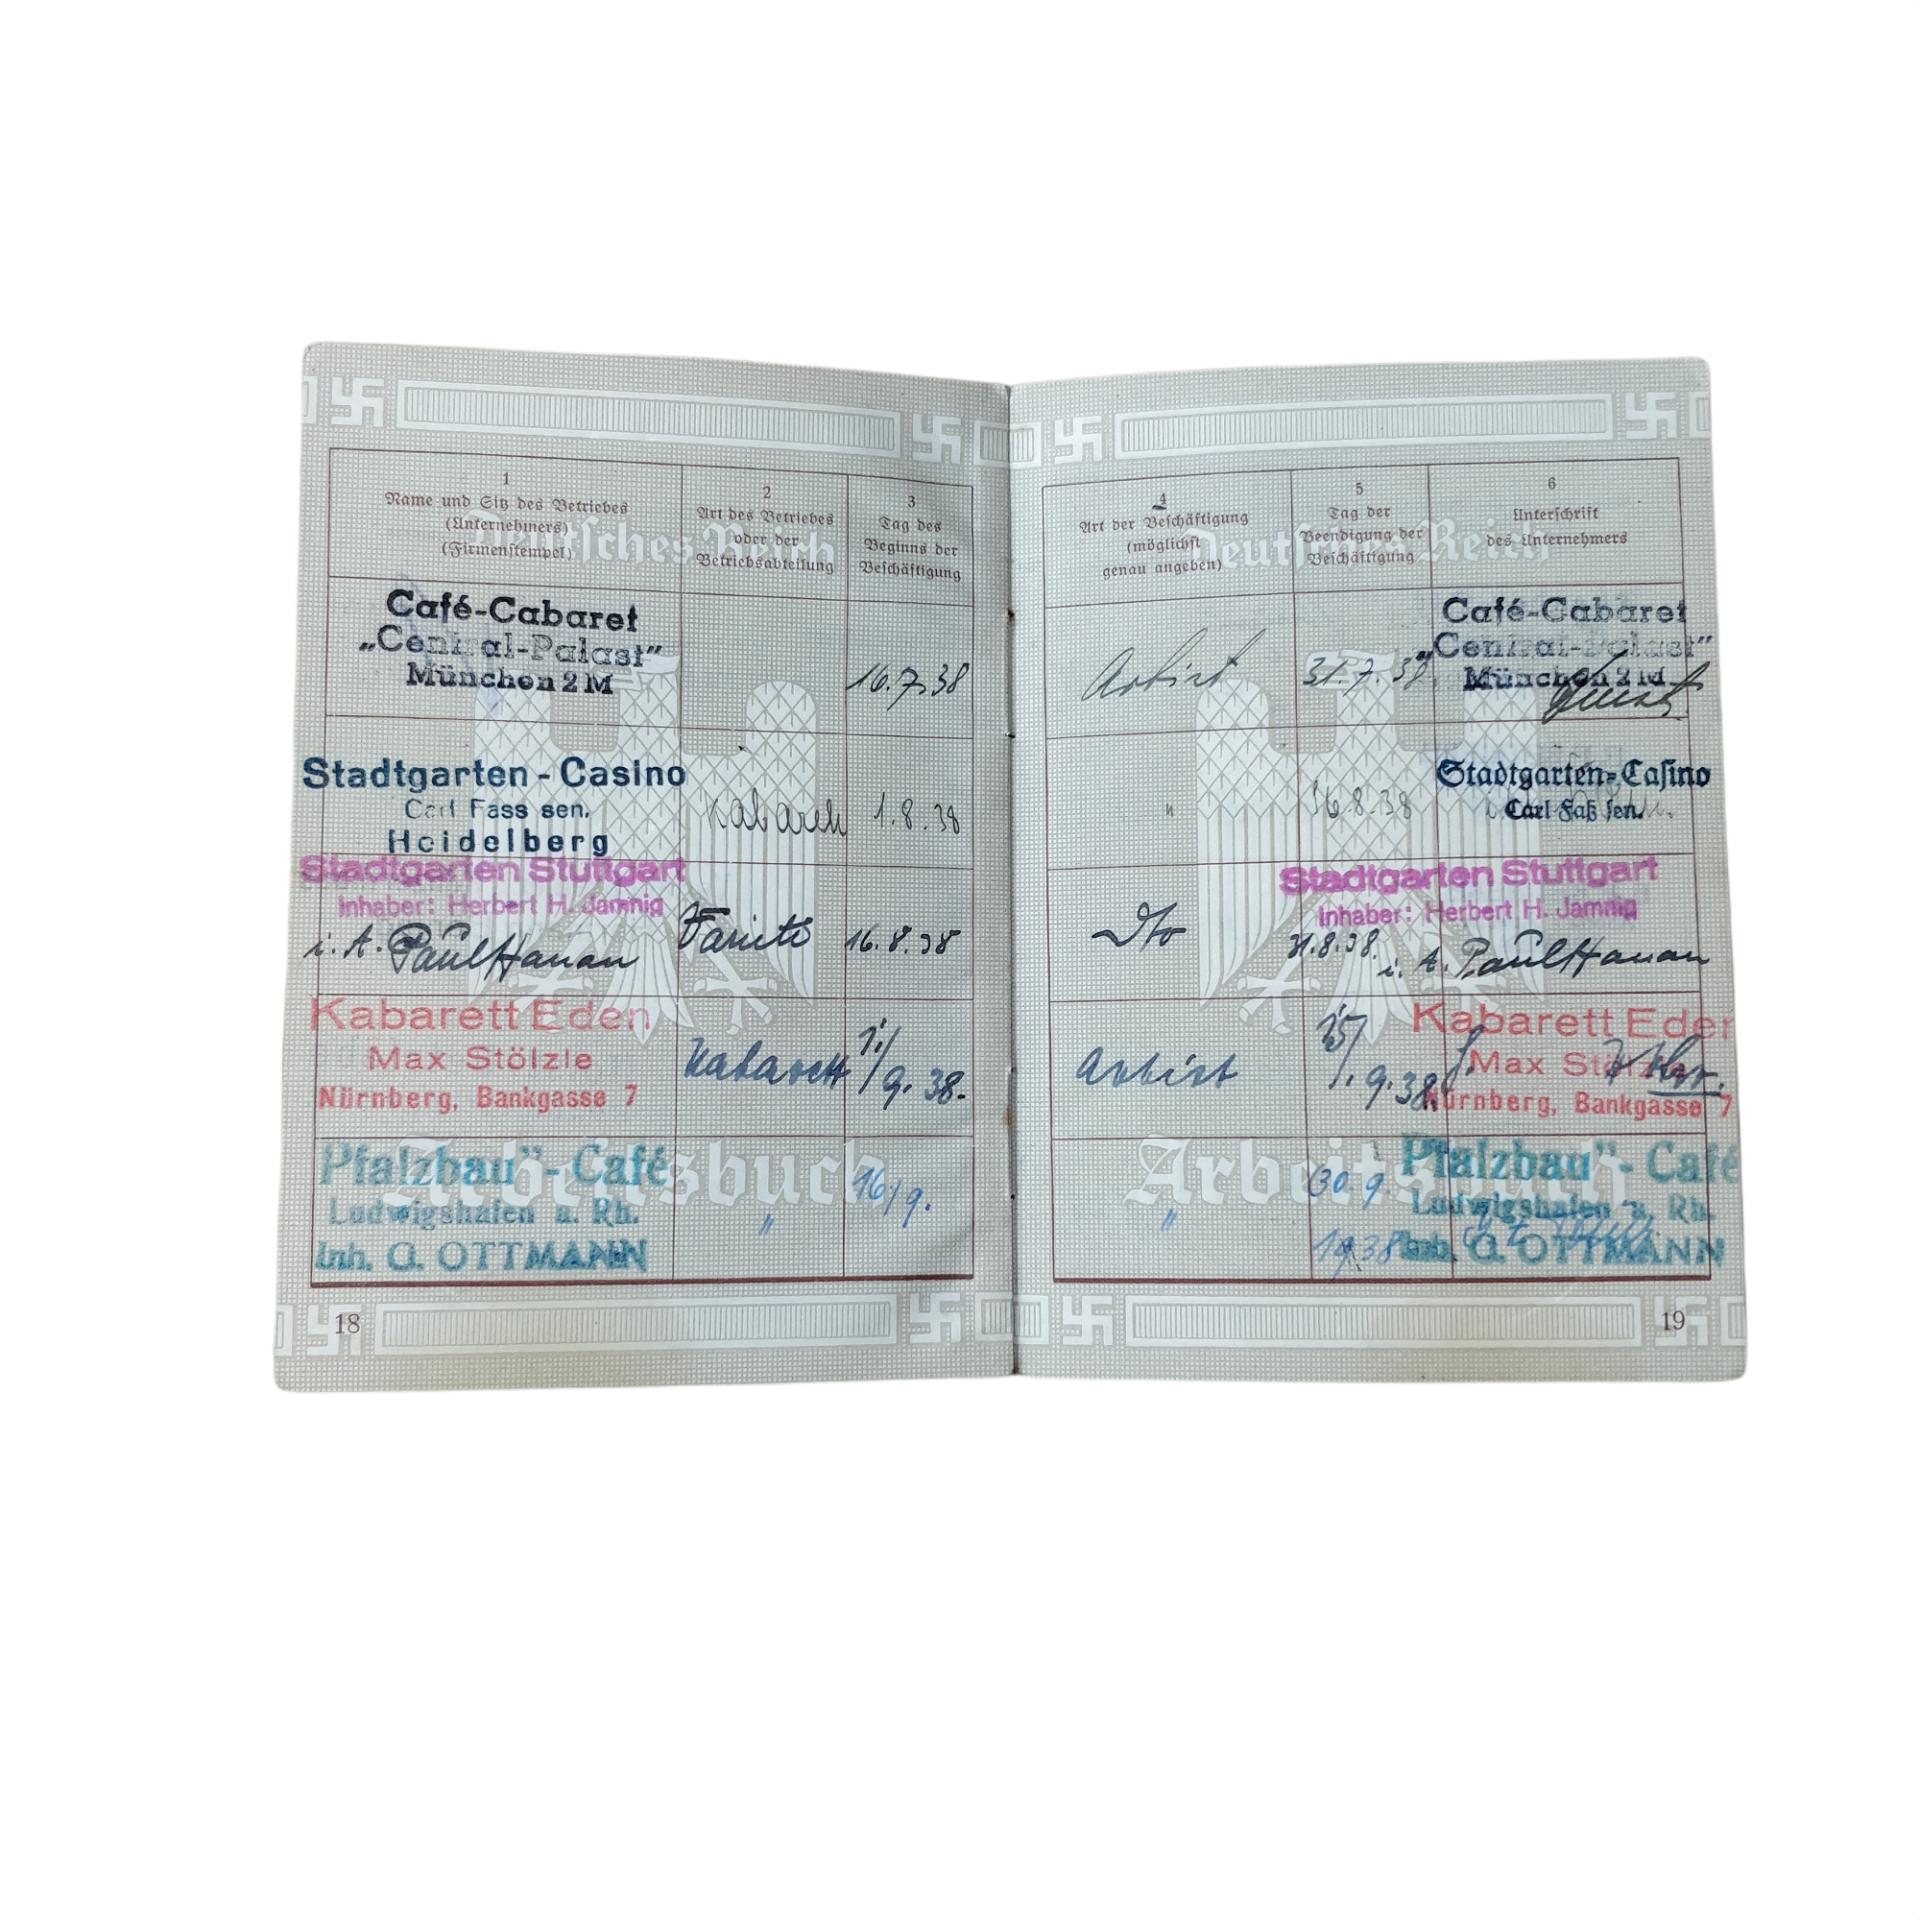 1
Name und Sitz des Betriebes
(Unternehmers)
(Firmenstempel)
2
Art des Betriebes
oder der
Betriebsabteilung
3
Tag des
Beginns der
Beschäftigung
Deutsches Reich
Café-Cabaret
„Central-Palast"
München 2 M
16.7.38
Stadtgarten - Casino
Carl Fass sen.
Heidelberg
Kabarett
1.8.38
Stadtgarten Stuttgart
Inhaber: Herbert H. Jamnig
i. A. Paul Hanan
Varieté
16.8.38
Kabarett Eden
Max Stölzle
Nürnberg, Bankgasse 7
Kabarett
1./9.38.
Pfalzbau"- Café
Ludwigshafen a. Rh.
Inh. G. OTTMANN
"
16/9.
Arbeitsbuch
18
4
Art der Beschäftigung
(möglichst
genau angeben)
5
Tag der
Beendigung der
Beschäftigung
6
Unterschrift
des Unternehmers
Deutsches Reich
Artist
31.7.38
Café-Cabaret
„Central-Palast"
München 2 M
"
Stadtgarten-Casino
Carl Faß sen.
Dto
31.8.38.
Stadtgarten Stuttgart
Inhaber: Herbert H. Jamnig
i. A. Paul Hanan
Artist
15/. 9.38.
Kabarett Eden
Max Stölzle
Nürnberg, Bankgasse 7
"
30.9.
1938
Pfalzbau"- Café
Ludwigshafen a. Rh.
Inh. G. OTTMANN
Arbeitsbuch
19